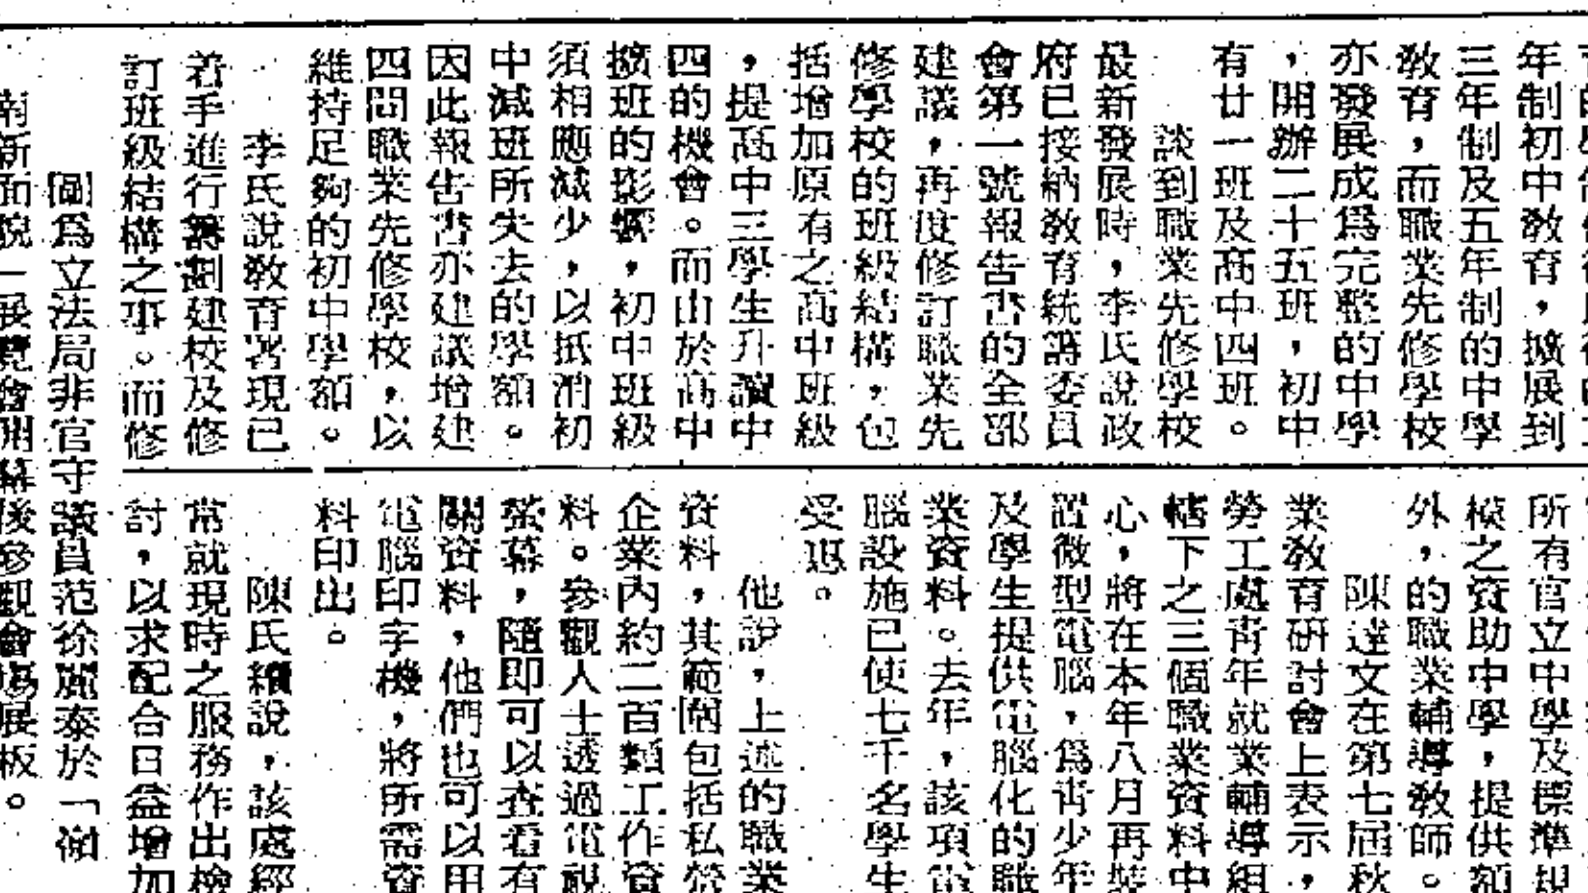 年制初中教育，擴展到
三年制及五年制的中學
教育，而職業先修學校
亦發展成爲完整的中學
，開辦二十五班，初中
有廿一班及高中四班。
談到職業先修學校
最新發展時，李氏說政
府已接納教育統籌委員
會第一號報告書的全部
建議，再度修訂職業先
修學校的班級結構，包
括增加原有之高中班級
，提高中三學生升讀中
四的機會。而由於高中
擴班的影響，初中班級
須相應減少，以抵消初
中減班所失去的學額。
因此報告書亦建議增建
四間職業先修學校，以
維持足夠的初中學額。
李氏說教育署現已
着手進行籌劃建校及修
訂班級結構之事。而修
所有官立中學及標準規
模之資助中學，提供額
外，的職業輔導教師。
陳達文在第七屆秋
業教育研討會上表示，
勞工處青年就業輔導組
轄下之三個職業資料中
心，將在本年八月再裝
置微型電腦，爲青少年
及學生提供電腦化的職
業資料。去年，該項電
腦設施已使七千名學生
受惠。
他說，上述的職業
資料，其範圍包括私營
企業內約二百類工作資
料。參觀人士透過電視
螢幕，隨即可以查看有
關資料，他們也可以用
電腦印字機，將所需資
料印出。
陳氏續說，該處經
常就現時之服務作出檢
討，以求配合日益增加
圖爲立法局非官守議員范徐麗泰於「嶺
南新面貌」展覽會開幕後參觀會場展板。